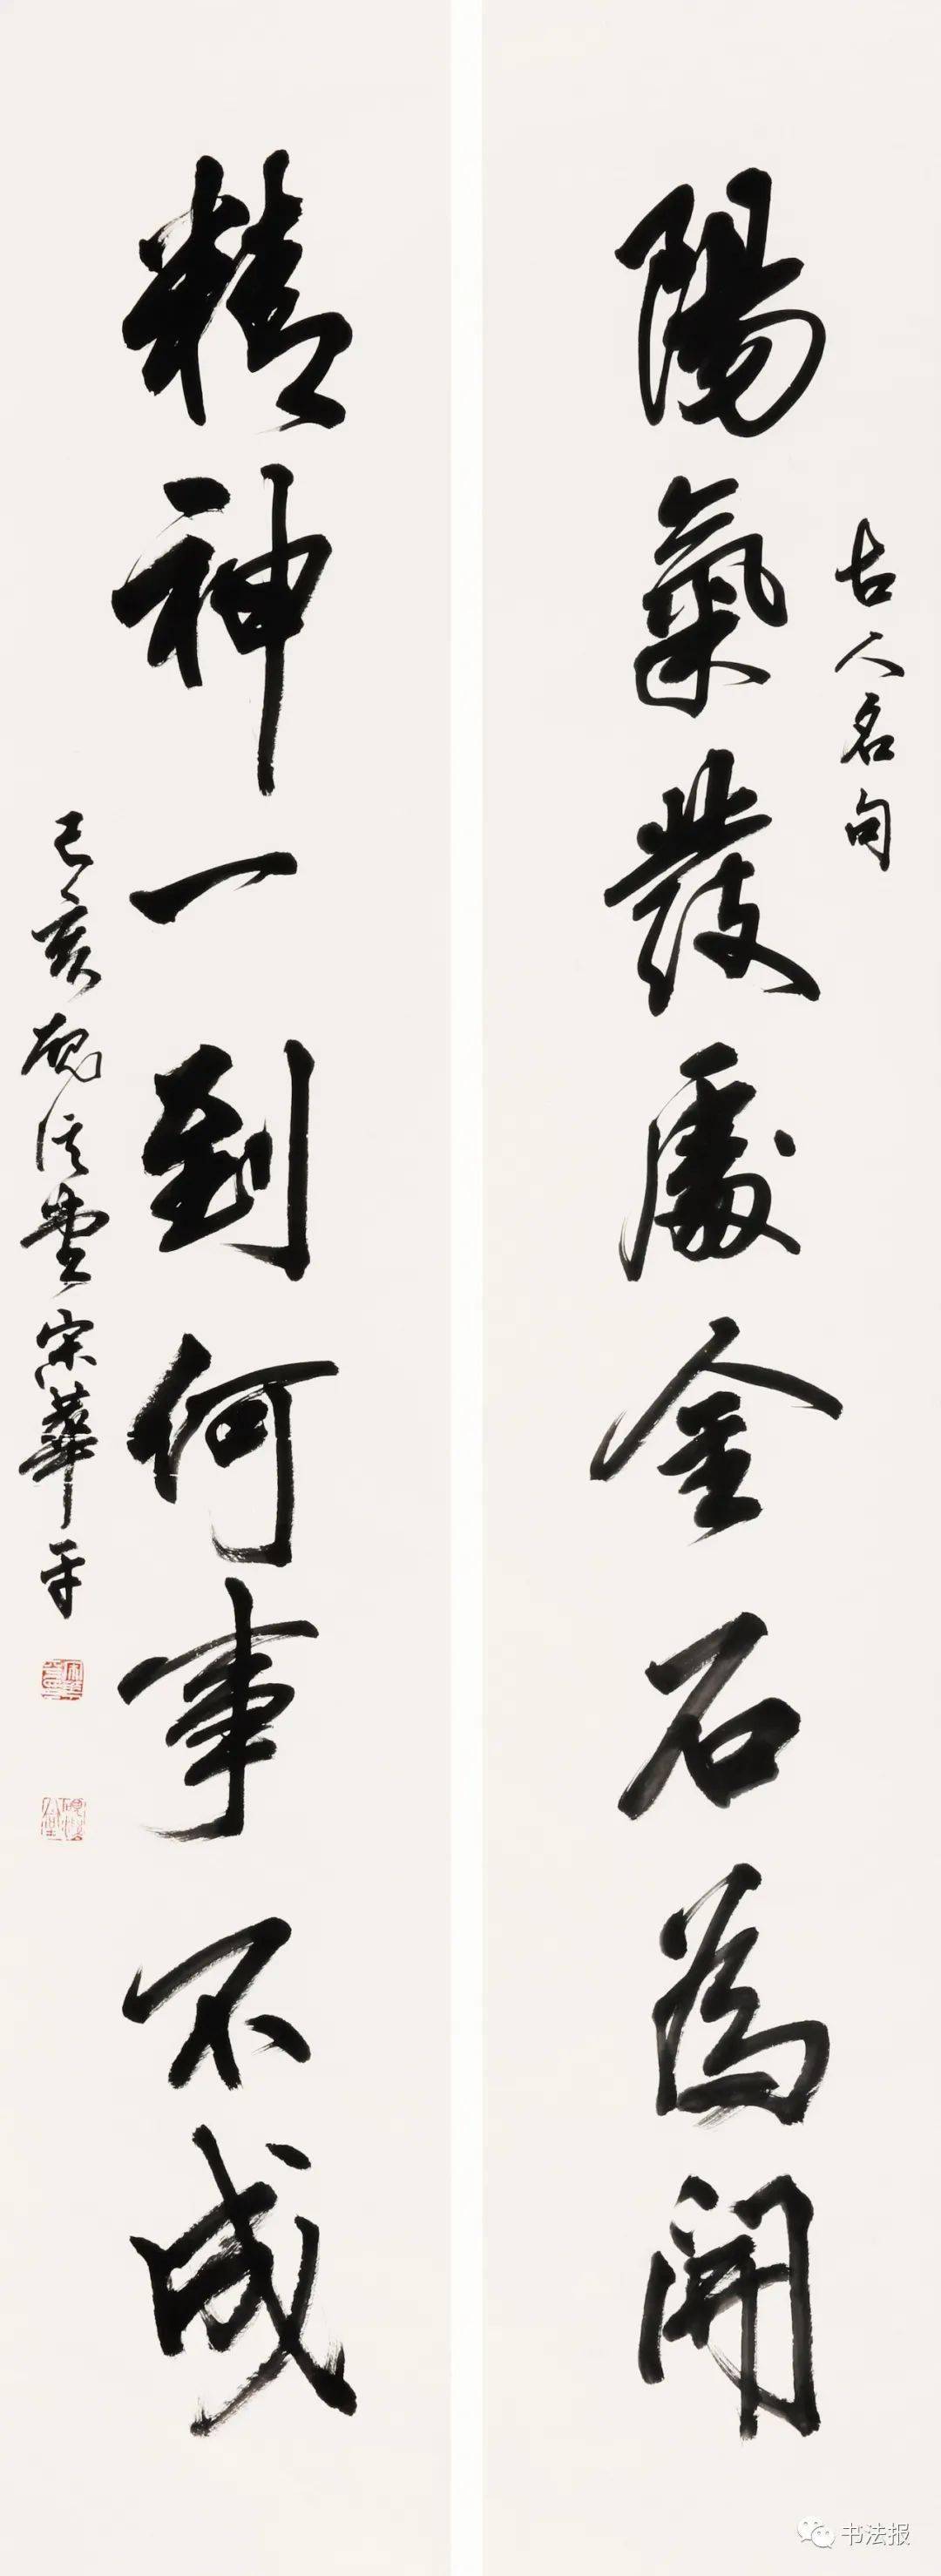 陽氣發處金石為開
古人名句
精神一到何事不成
己亥硯淫堂宗華平
书法报